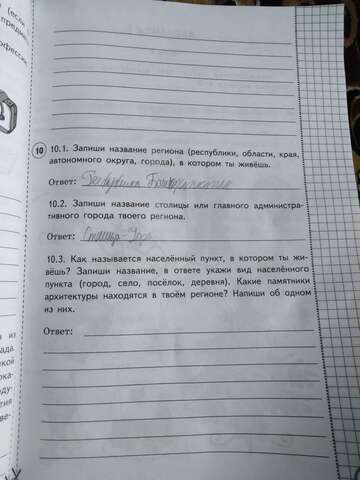 (если
предме
офесси
10 10.1. Запиши название региона (республики, области, края,
автономного округа, города), в котором ты живёшь.
Ответ: Республика Башкортостан
10.2. Запиши название столицы или главного администра-
тивного города твоего региона.
Ответ: Столица - Уфа
10.3. Как называется населённый пункт, в котором ты жи-
вёшь? Запиши название, в ответе укажи вид населённого
пункта (город, село, посёлок, деревня). Какие памятники
архитектуры находятся в твоём регионе? Напиши об одном
из них.
Ответ:
из
ада.
кой
ока-
оду-
тия
ве-